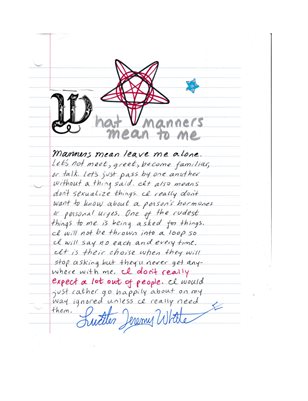 What manners
mean to me
Manners mean leave me alone.
Let's not meet, greet, become familiar,
or talk. Let's just pass by one another
without a thing said. It also means
don't sexualize things. I really don't
want to know about a person's hormones
or personal urges. One of the rudest
things to me is being asked for things.
I will not be thrown into a loop so
I will say no each and every time.
It is their choice when they will
stop asking but they'll never get any-
where with me. I don't really
expect a lot out of people. I would
just rather go happily about on my
way ignored unless I really need
them.
Jeremy White